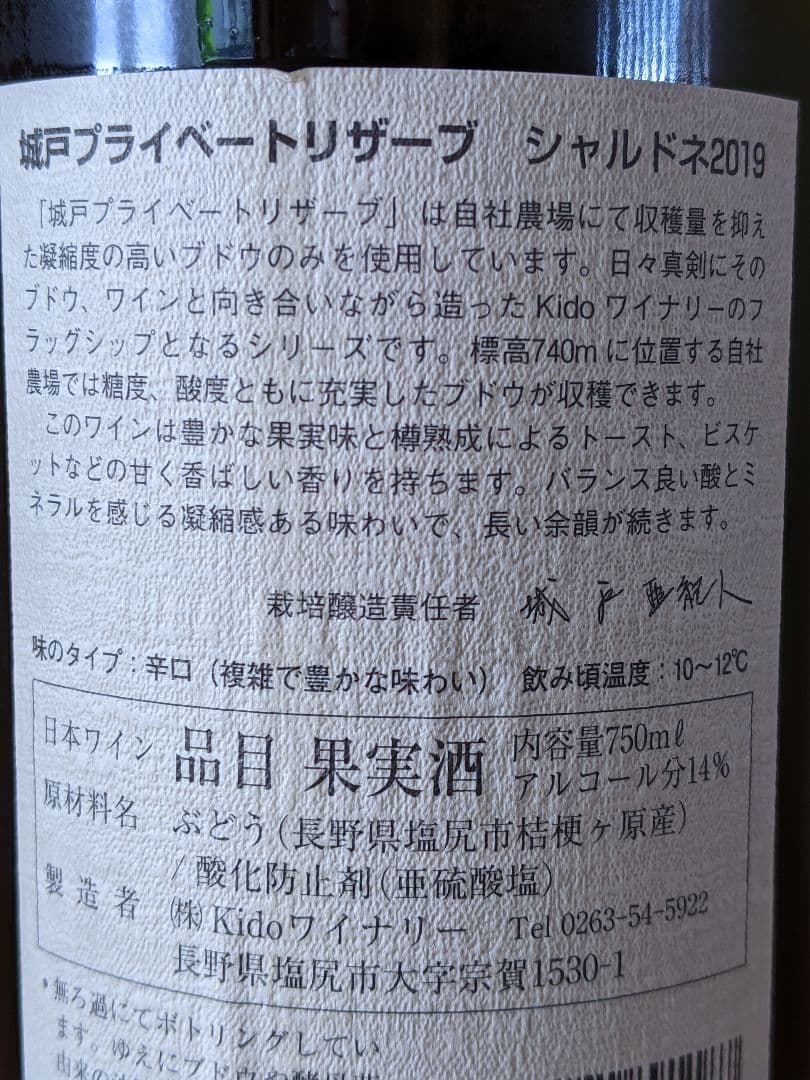 城戸プライベートリザーブ　シャルドネ2019
「城戸プライベートリザーブ」は自社農場にて収穫量を抑え
た凝縮度の高いブドウのみを使用しています。日々真剣にその
ブドウ、ワインと向き合いながら造ったKidoワイナリーのフ
ラッグシップとなるシリーズです。標高740mに位置する自社
農場では糖度、酸度ともに充実したブドウが収穫できます。
このワインは豊かな果実味と樽熟成によるトースト、ビスケ
ットなどの甘く香ばしい香りを持ちます。バランス良い酸とミ
ネラルを感じる凝縮感ある味わいで、長い余韻が続きます。
栽培醸造責任者　城戸亜紀人
味のタイプ：辛口（複雑で豊かな味わい）　飲み頃温度：10〜12℃
日本ワイン　品目　果実酒　内容量750mℓ
アルコール分14%
原材料名　ぶどう（長野県塩尻市桔梗ヶ原産）
/酸化防止剤（亜硫酸塩）
製造者　㈱Kidoワイナリー　Tel 0263-54-5922
長野県塩尻市大字宗賀1530-1
*無ろ過にてボトリングしてい
ます。ゆえにブドウや酵母
由来の